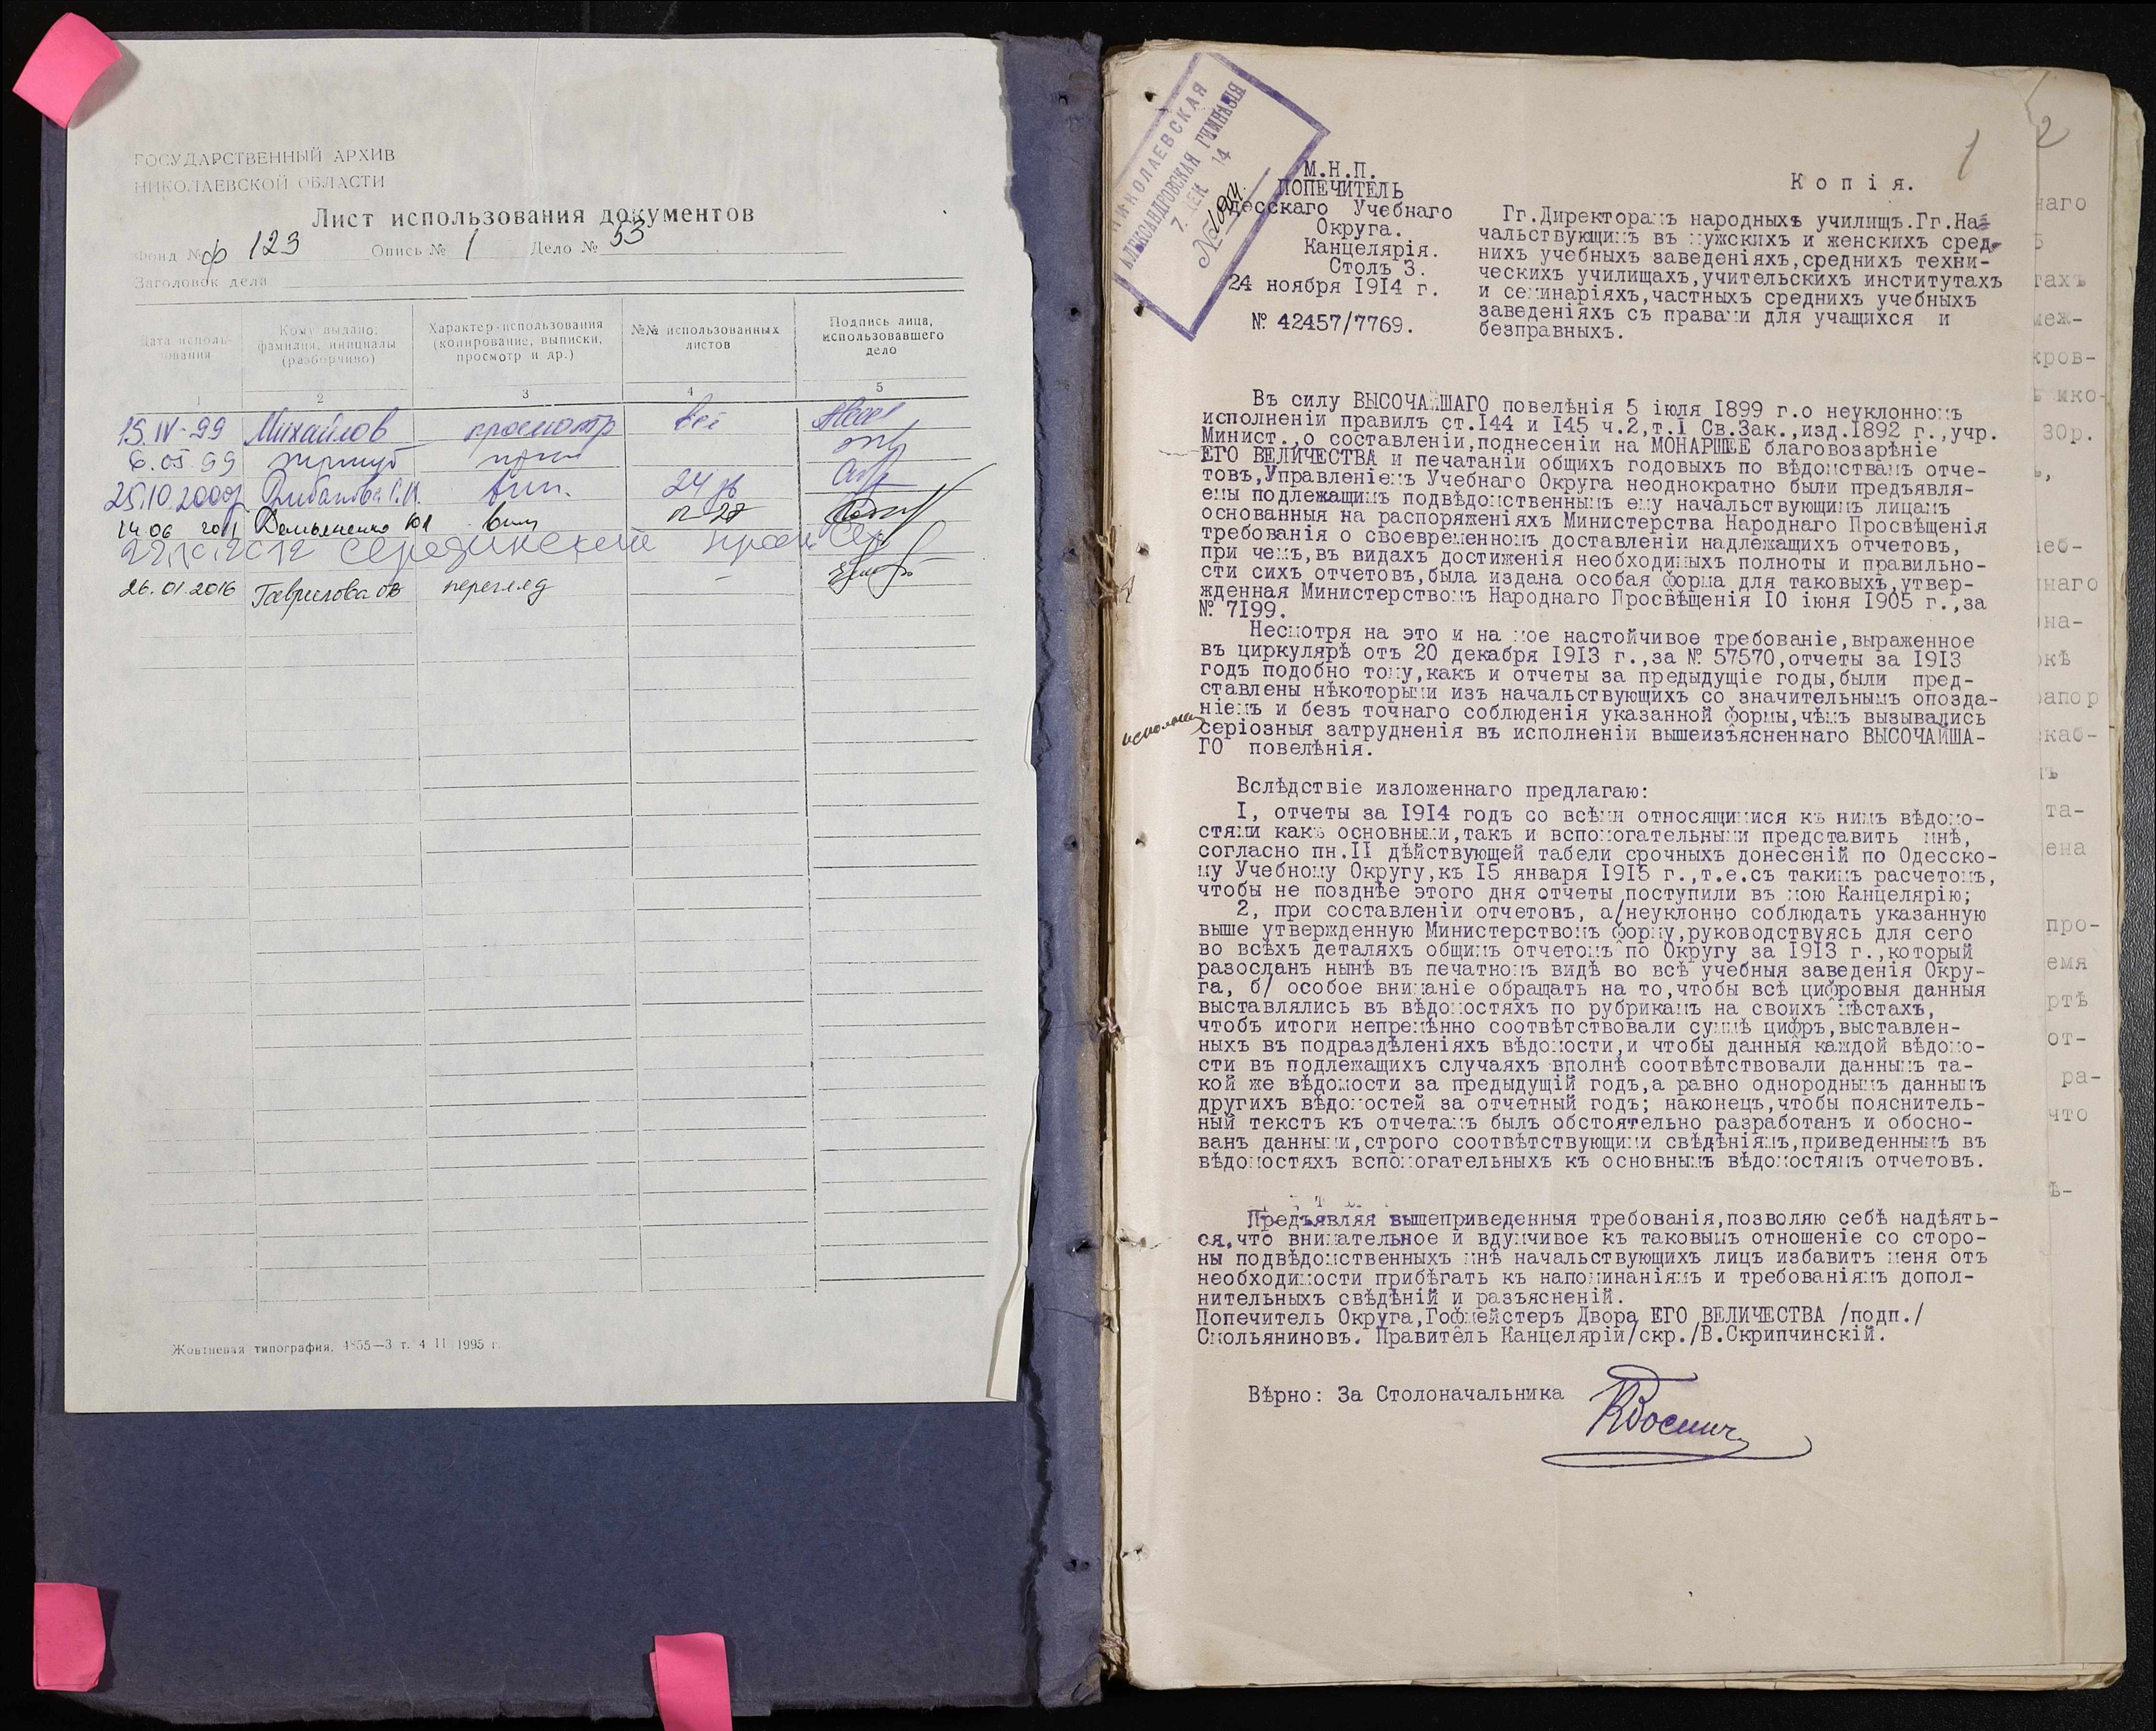 ГОСУДАРСТВЕННЫЙ АРХИВ
НИКОЛАЕВСКОЙ ОБЛАСТИ
Лист использования документов
Фонд № ф 123 Опись № 1 Дело № 53
Заголовок дела
Дата использования
Кому выдано, фамилия, инициалы (разборчиво)
Характер использования (копирование, выписки, просмотр и др.)
№№ использованных листов
Подпись лица, использовавшего дело
1 2 3 4 5
15.IV-99 Михайлов просмотр все
6.05.99
25.10.2000 вип. 24
14.06 2011 Демьяненко Ю
22.10.2012
26.01.2016 Гаврилова перегляд –
Жовтневая типография, 4855—3 т. 4 II 1995 г.
НИКОЛАЕВСКАЯ
АЛЕКСАНДРОВСКАЯ ГИМНАЗІЯ
7. ДЕК. 14
№
1 2
М.Н.П.
ПОПЕЧИТЕЛЬ
Одесскаго Учебнаго
Округа.
Канцелярія.
Столъ 3.
24 ноября 1914 г.
№ 42457/7769.
Копія.
Гг.Директорамъ народныхъ училищъ.Гг.На-
чальствующимъ въ мужскихъ и женскихъ сред-
нихъ учебныхъ заведеніяхъ,средних техни-
ческихъ училищахъ,учительскихъ институтахъ
и семинаріяхъ,частныхъ среднихъ учебныхъ
заведеніяхъ съ правами для учащихся и
безправныхъ.
Въ силу ВЫСОЧАЙШАГО повелѣнія 5 іюля 1899 г.о неуклонномъ
исполненіи правилъ ст.144 и 145 ч.2,т.I Св.Зак.,изд.1892 г.,учр.
Минист.,о составленіи,поднесеніи на МОНАРШЕЕ благовоззрѣніе
ЕГО ВЕЛИЧЕСТВА и печатаніи общихъ годовыхъ по вѣдомствамъ отче-
товъ,Управленіемъ Учебнаго Округа неоднократно были предъявля-
емы подлежащимъ подвѣдомственнымъ ему начальствующимъ лицамъ
основанныя на распоряженіяхъ Министерства Народнаго Просвѣщенія
требованія о своевременномъ доставленіи надлежащихъ отчетовъ,
при чемъ,въ видахъ достиженія необходимыхъ полноты и правильно-
сти сихъ отчетовъ,была издана особая форма для таковыхъ,утвер-
жденная Министерствомъ Народнаго Просвѣщенія 10 іюня 1905 г.,за
№ 7199.
Несмотря на это и на мое настойчивое требованіе,выраженное
въ циркулярѣ отъ 20 декабря 1913 г.,за № 57570,отчеты за 1913
годъ подобно тому,какъ и отчеты за предыдущіе годы,были пред-
ставлены нѣкоторыми изъ начальствующихъ со значительнымъ опозда-
ніемъ и безъ точнаго соблюденія указанной формы,чѣмъ вызывались
серіозныя затрудненія въ исполненіи вышеизъясненнаго ВЫСОЧАЙША-
ГО повелѣнія.
Вслѣдствіе изложеннаго предлагаю:
I, отчеты за 1914 годъ со всѣми относящимися къ нимъ вѣдомо-
стями какъ основными,такъ и вспомогательными представить мнѣ,
согласно пн.II дѣйствующей табели срочныхъ донесеній по Одесско-
му Учебному Округу,къ 15 января 1915 г.,т.е.съ такимъ расчетомъ,
чтобы не позднѣе этого дня отчеты поступили въ мою Канцелярію;
2, при составленіи отчетовъ, а/неуклонно соблюдать указанную
выше утвержденную Министерствомъ форму,руководствуясь для сего
во всѣхъ деталяхъ общимъ отчетомъ по Округу за 1913 г.,который
разосланъ нынѣ въ печатномъ видѣ во всѣ учебныя заведенія Окру-
га, б/ особое вниманіе обращать на то,чтобы всѣ цифровыя данныя
выставлялись въ вѣдомостяхъ по рубрикамъ на своихъ мѣстахъ,
чтобъ итоги непремѣнно соотвѣтствовали суммѣ цифръ,выставлен-
ныхъ въ подраздѣленіяхъ вѣдомости,и чтобы данныя каждой вѣдомо-
сти въ подлежащихъ случаяхъ вполнѣ соотвѣтствовали даннымъ та-
кой же вѣдомости за предыдущій годъ,а равно однороднымъ даннымъ
другихъ вѣдомостей за отчетный годъ; наконецъ,чтобы пояснитель-
ный текстъ къ отчетамъ былъ обстоятельно разработанъ и обосно-
ванъ данными,строго соотвѣтствующими свѣдѣніямъ,приведеннымъ въ
вѣдомостяхъ вспомогательныхъ къ основнымъ вѣдомостямъ отчетовъ.
Предъявляя вышеприведенныя требованія,позволяю себѣ надѣять-
ся,что внимательное и вдумчивое къ таковымъ отношеніе со сторо-
ны подвѣдомственныхъ мнѣ начальствующихъ лицъ избавитъ меня отъ
необходимости прибѣгать къ напоминаніямъ и требованіямъ допол-
нительныхъ свѣдѣній и разъясненій.
Попечитель Округа,Гофмейстеръ Двора ЕГО ВЕЛИЧЕСТВА /подп./
Смольяниновъ. Правитель Канцеляріи/скр./В.Скрипчинскій.
Вѣрно: За Столоначальника